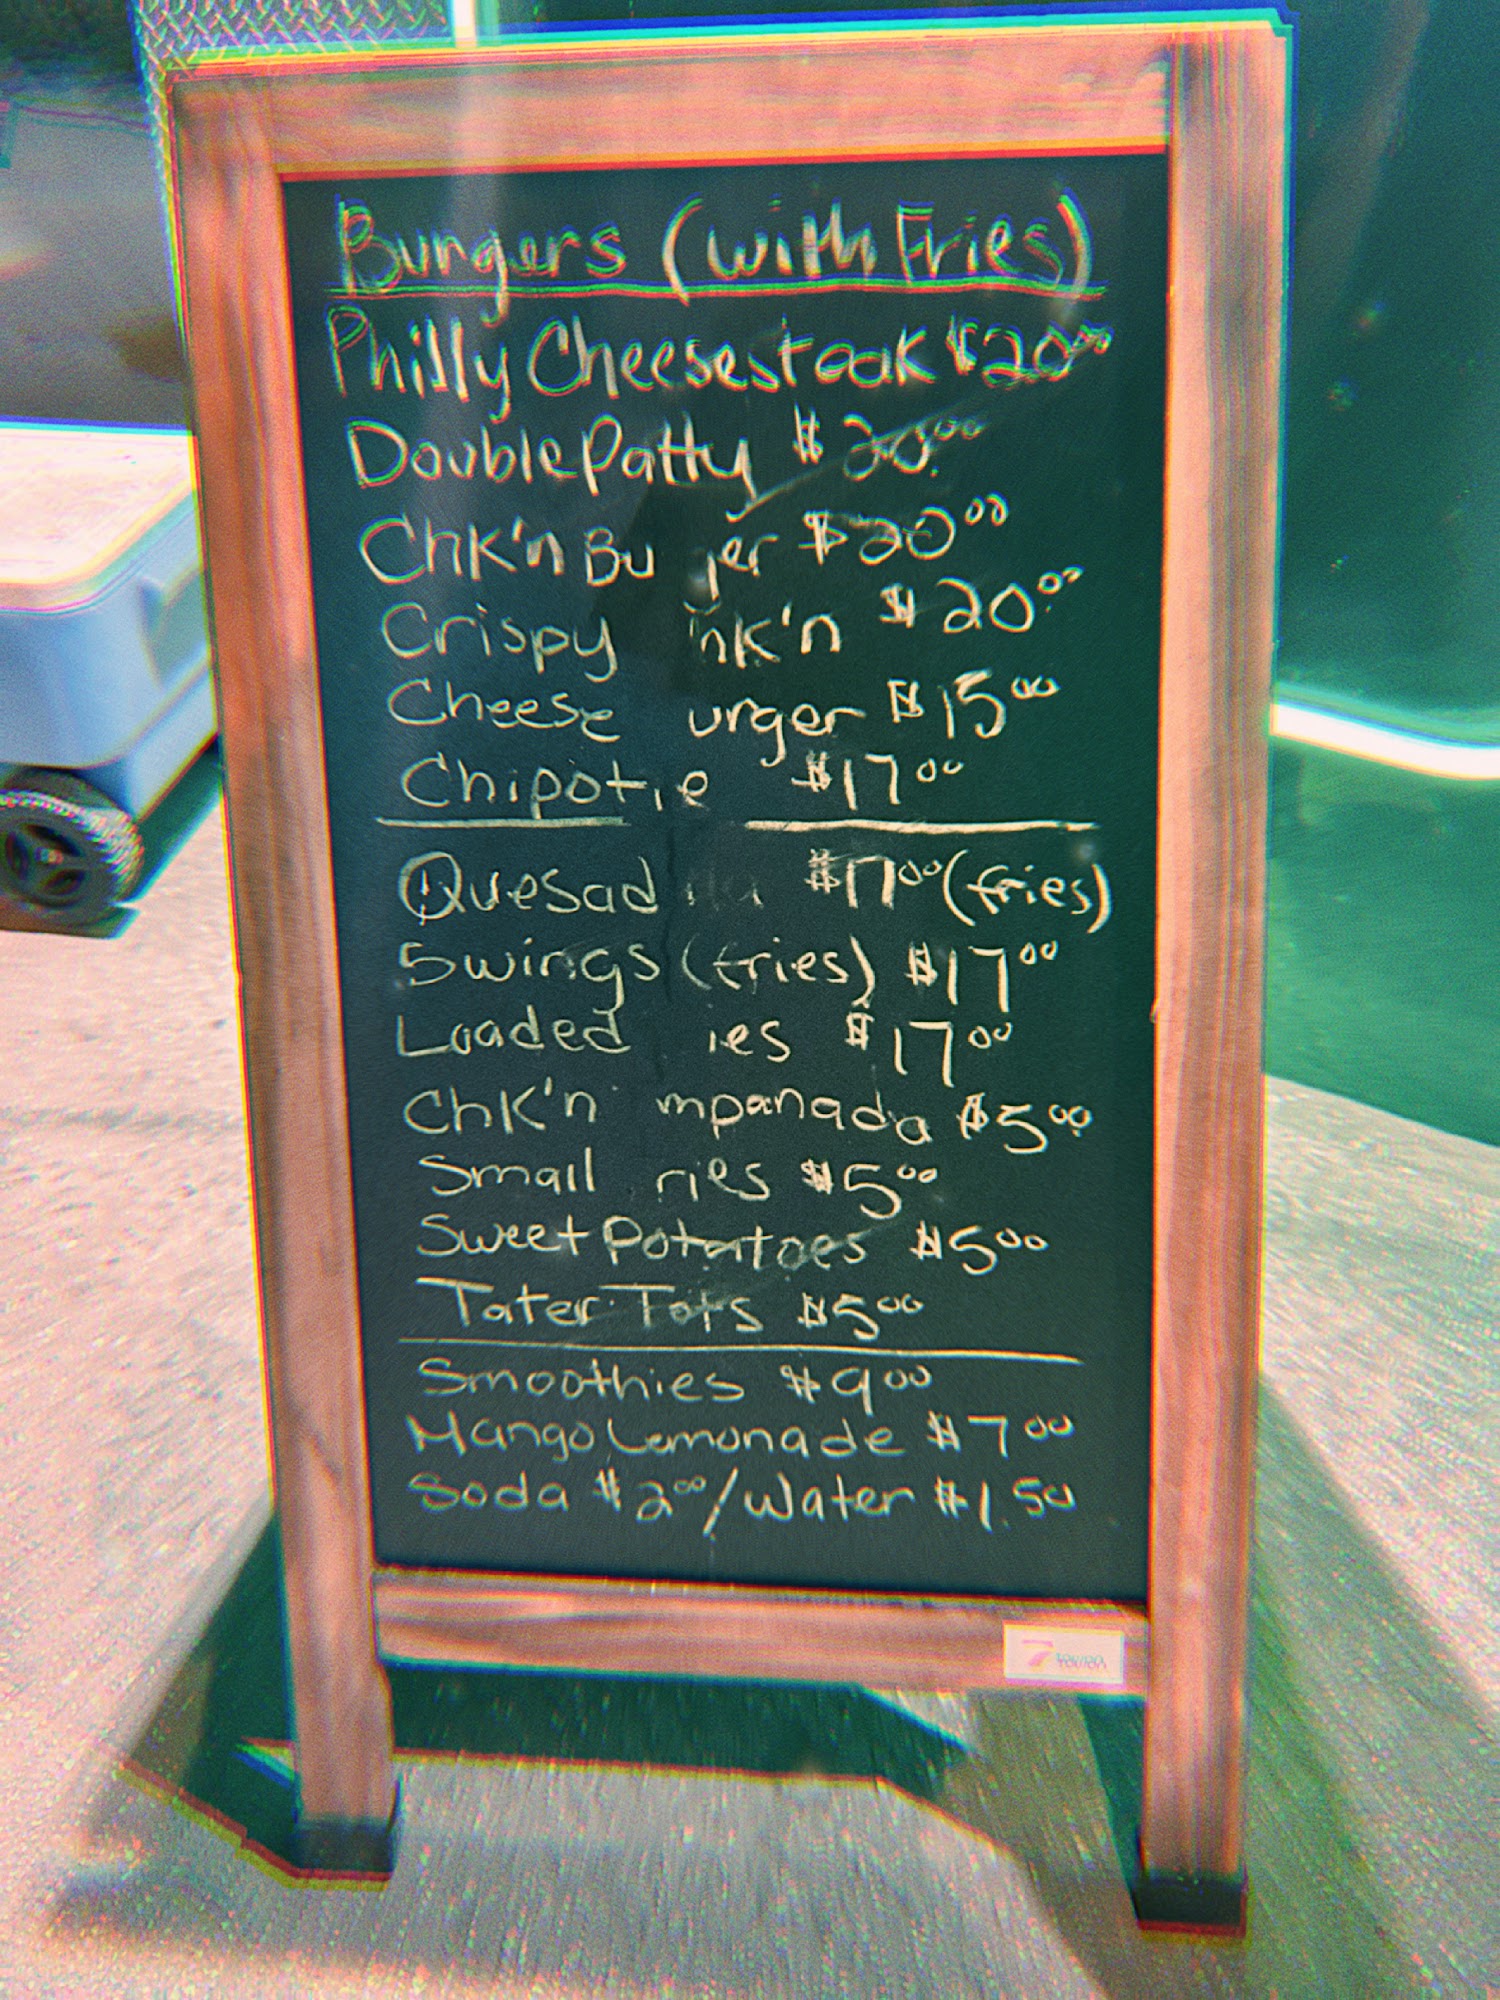 Burgers (with Fries)
Philly Cheesesteak $20.00
Double Patty $20.00
Chk'n Bu ger $20.00
Crispy hk'n $20.00
Cheese urger $15.00
Chipotle $17.00
Quesad $17.00 (fries)
5 wings (fries) $17.00
Loaded ies $17.00
Chk'n mpanada $5.00
Small ries $5.00
Sweet Potatoes $5.00
Tater Tots $5.00
Smoothies $9.00
Mango Lemonade $7.00
Soda $2.00/Water $1.50
7